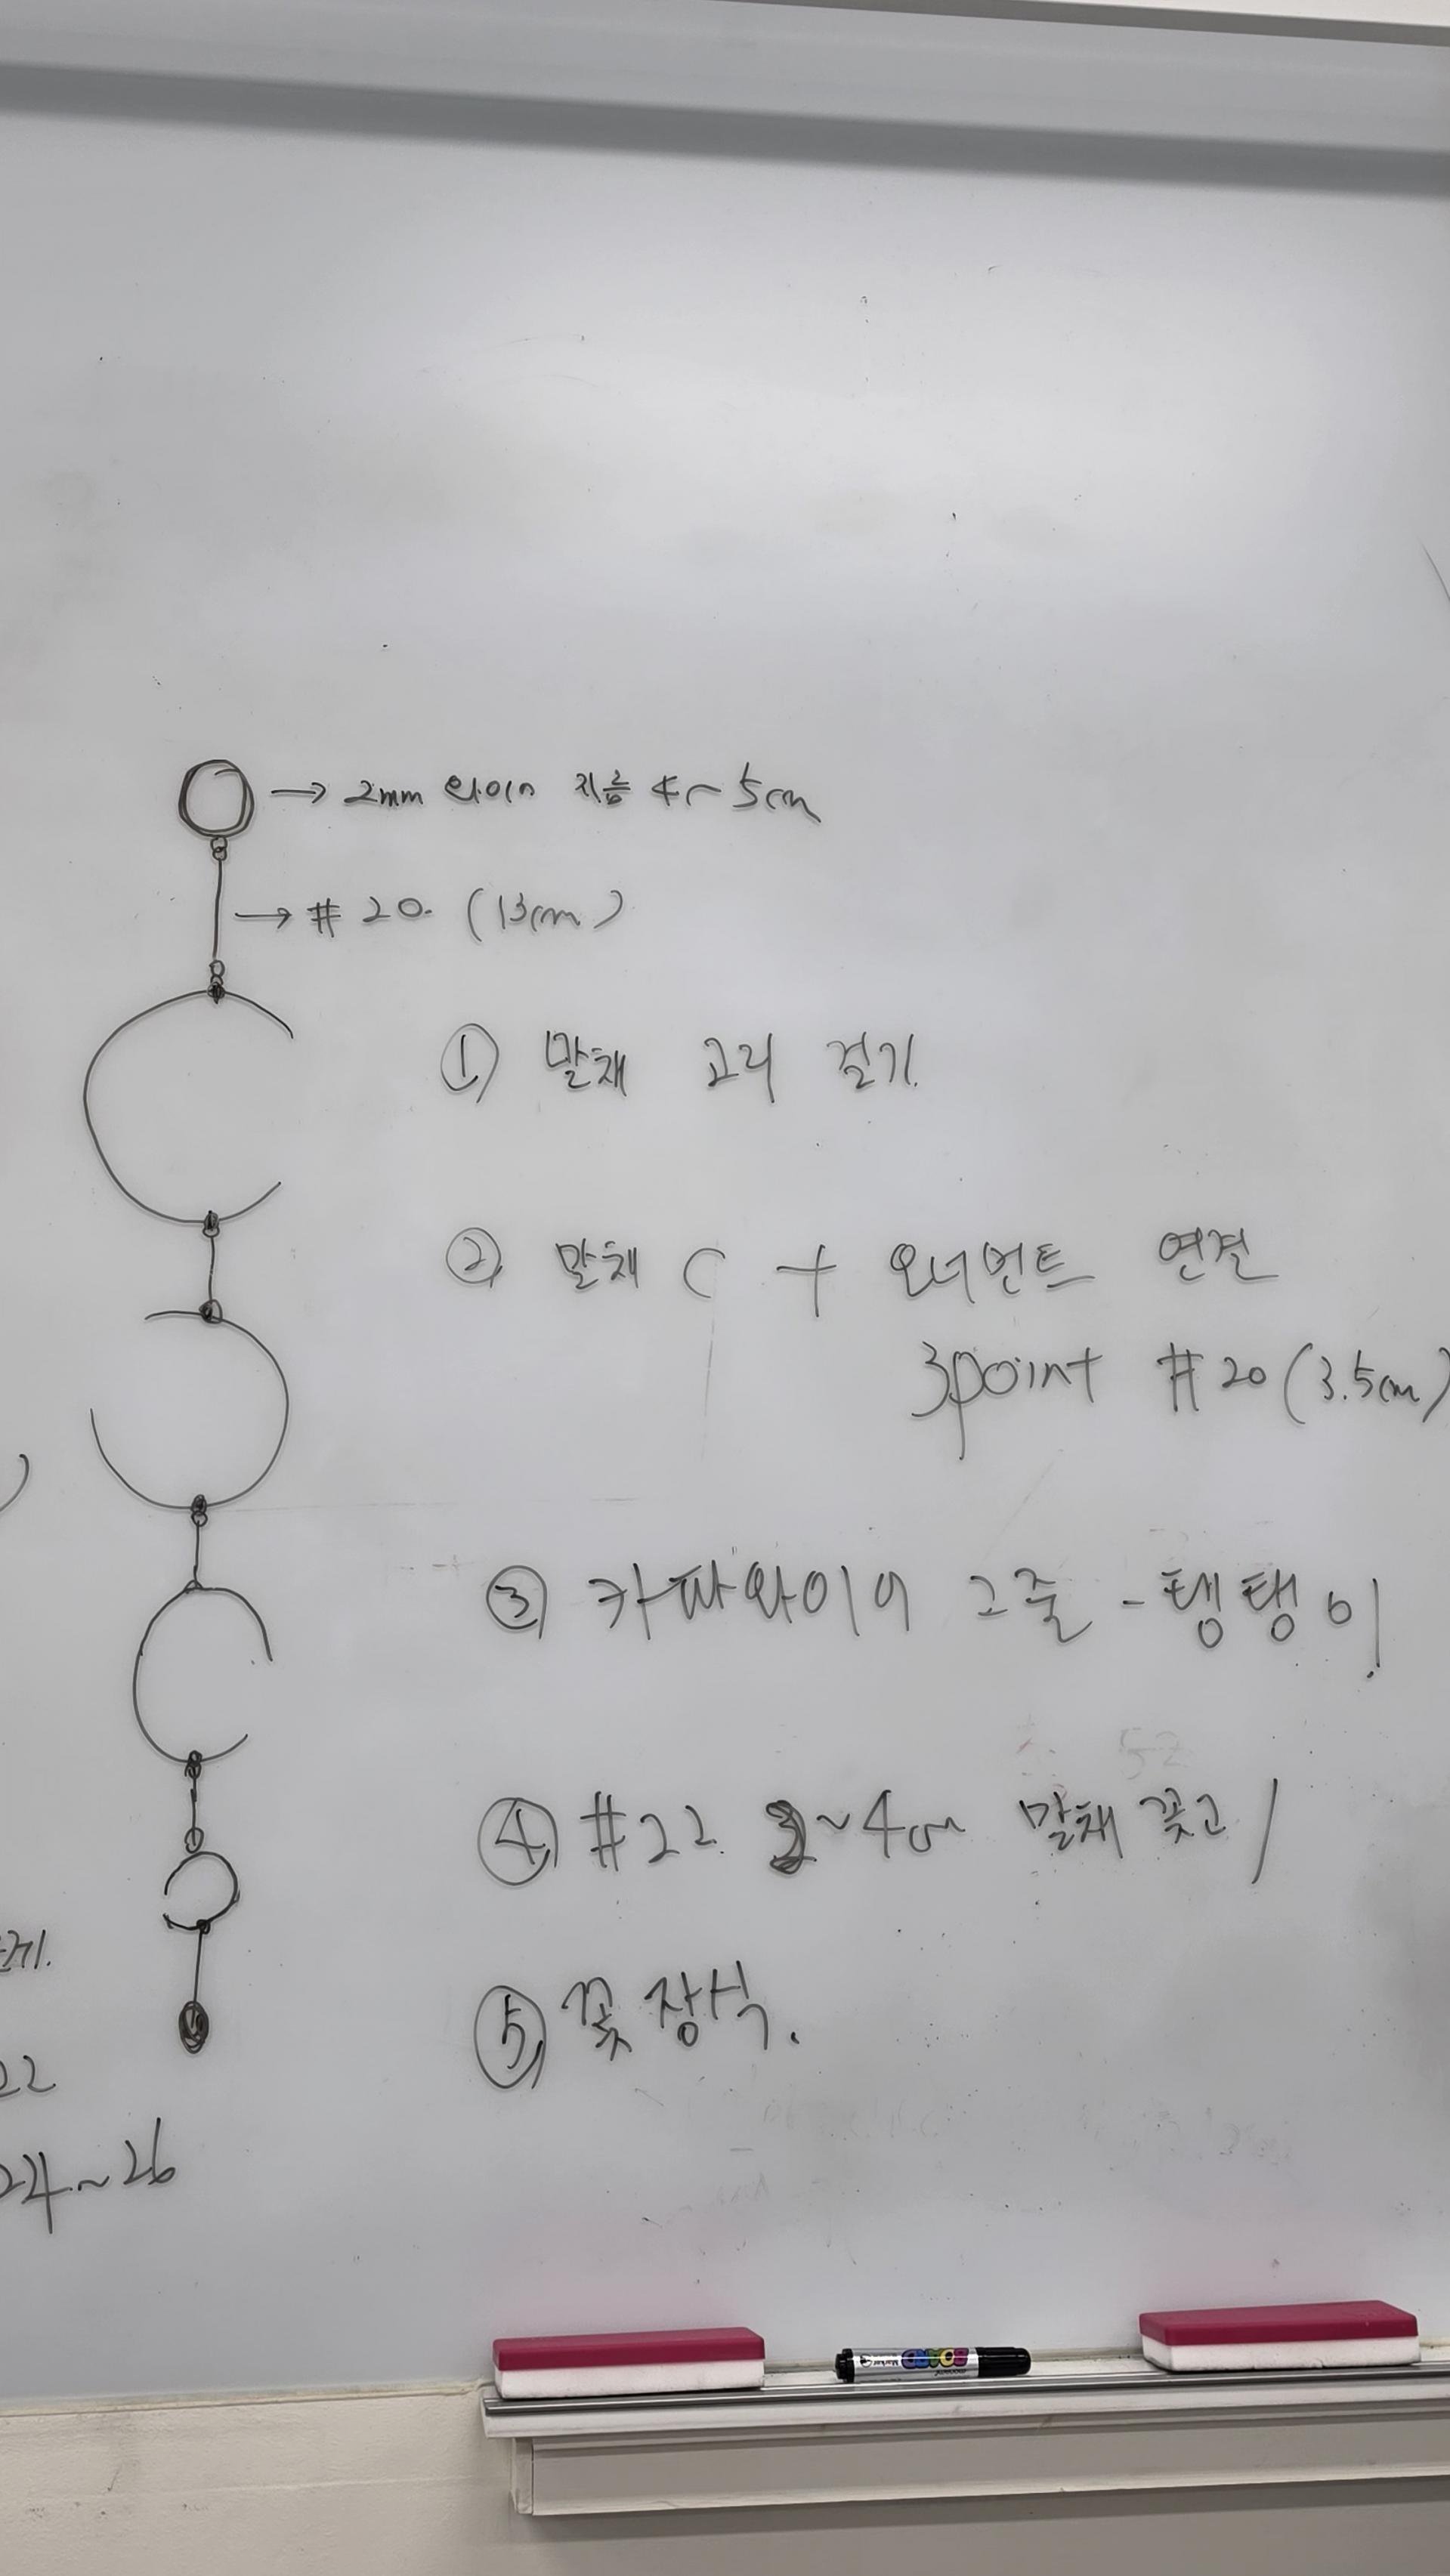 → 2mm 와이어 지름 4~5cm
→ # 20. (13cm)
① 말채 고리 걸기.
② 말채 C + 오너먼트 연결
3point #20 (3.5cm)
③ 카파와이어 2줄 - 텡탱이.
④ #22. 3~4cm 말채 꽂고 /
⑤ 꽃 장식.
22
24~26
BOARD
Marker